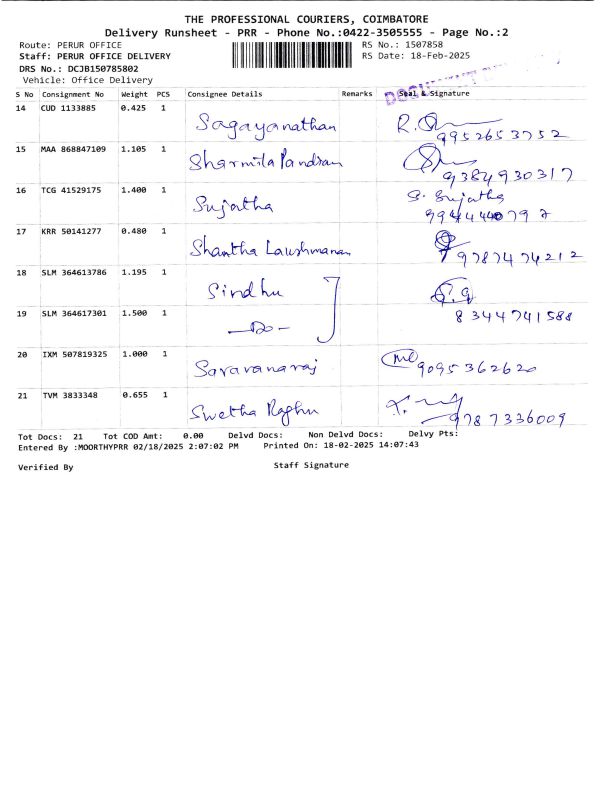 THE PROFESSIONAL COURIERS, COIMBATORE
Delivery Runsheet - PRR - Phone No.:0422-3505555 - Page No.:2
Route: PERUR OFFICE RS No.: 1507858
Staff: PERUR OFFICE DELIVERY RS Date: 18-Feb-2025
DRS No.: DCJB150785802
Vehicle: Office Delivery
S No Consignment No Weight PCS Consignee Details Remarks Seal & Signature
14 CUD 1133885 0.425 1
Sagayanathan 9952653752
15 MAA 868847109 1.105 1
Sharmila Pandian 9384930317
16 TCG 41529175 1.400 1 S. Sujatha
Sujatha
17 KRR 50141277 0.480 1
Shantha Laushmanan 9787474212
18 SLM 364613786 1.195 1
Sindhu
19 SLM 364617301 1.500 1 8344741588
-Do-
20 IXM 507819325 1.000 1
Saravanaraj 9095362620
21 TVM 3833348 0.655 1
Swetha Raghu 9787336009
Tot Docs: 21 Tot COD Amt: 0.00 Delvd Docs: Non Delvd Docs: Delvy Pts:
Entered By :MOORTHYPRR 02/18/2025 2:07:02 PM Printed On: 18-02-2025 14:07:43
Verified By Staff Signature